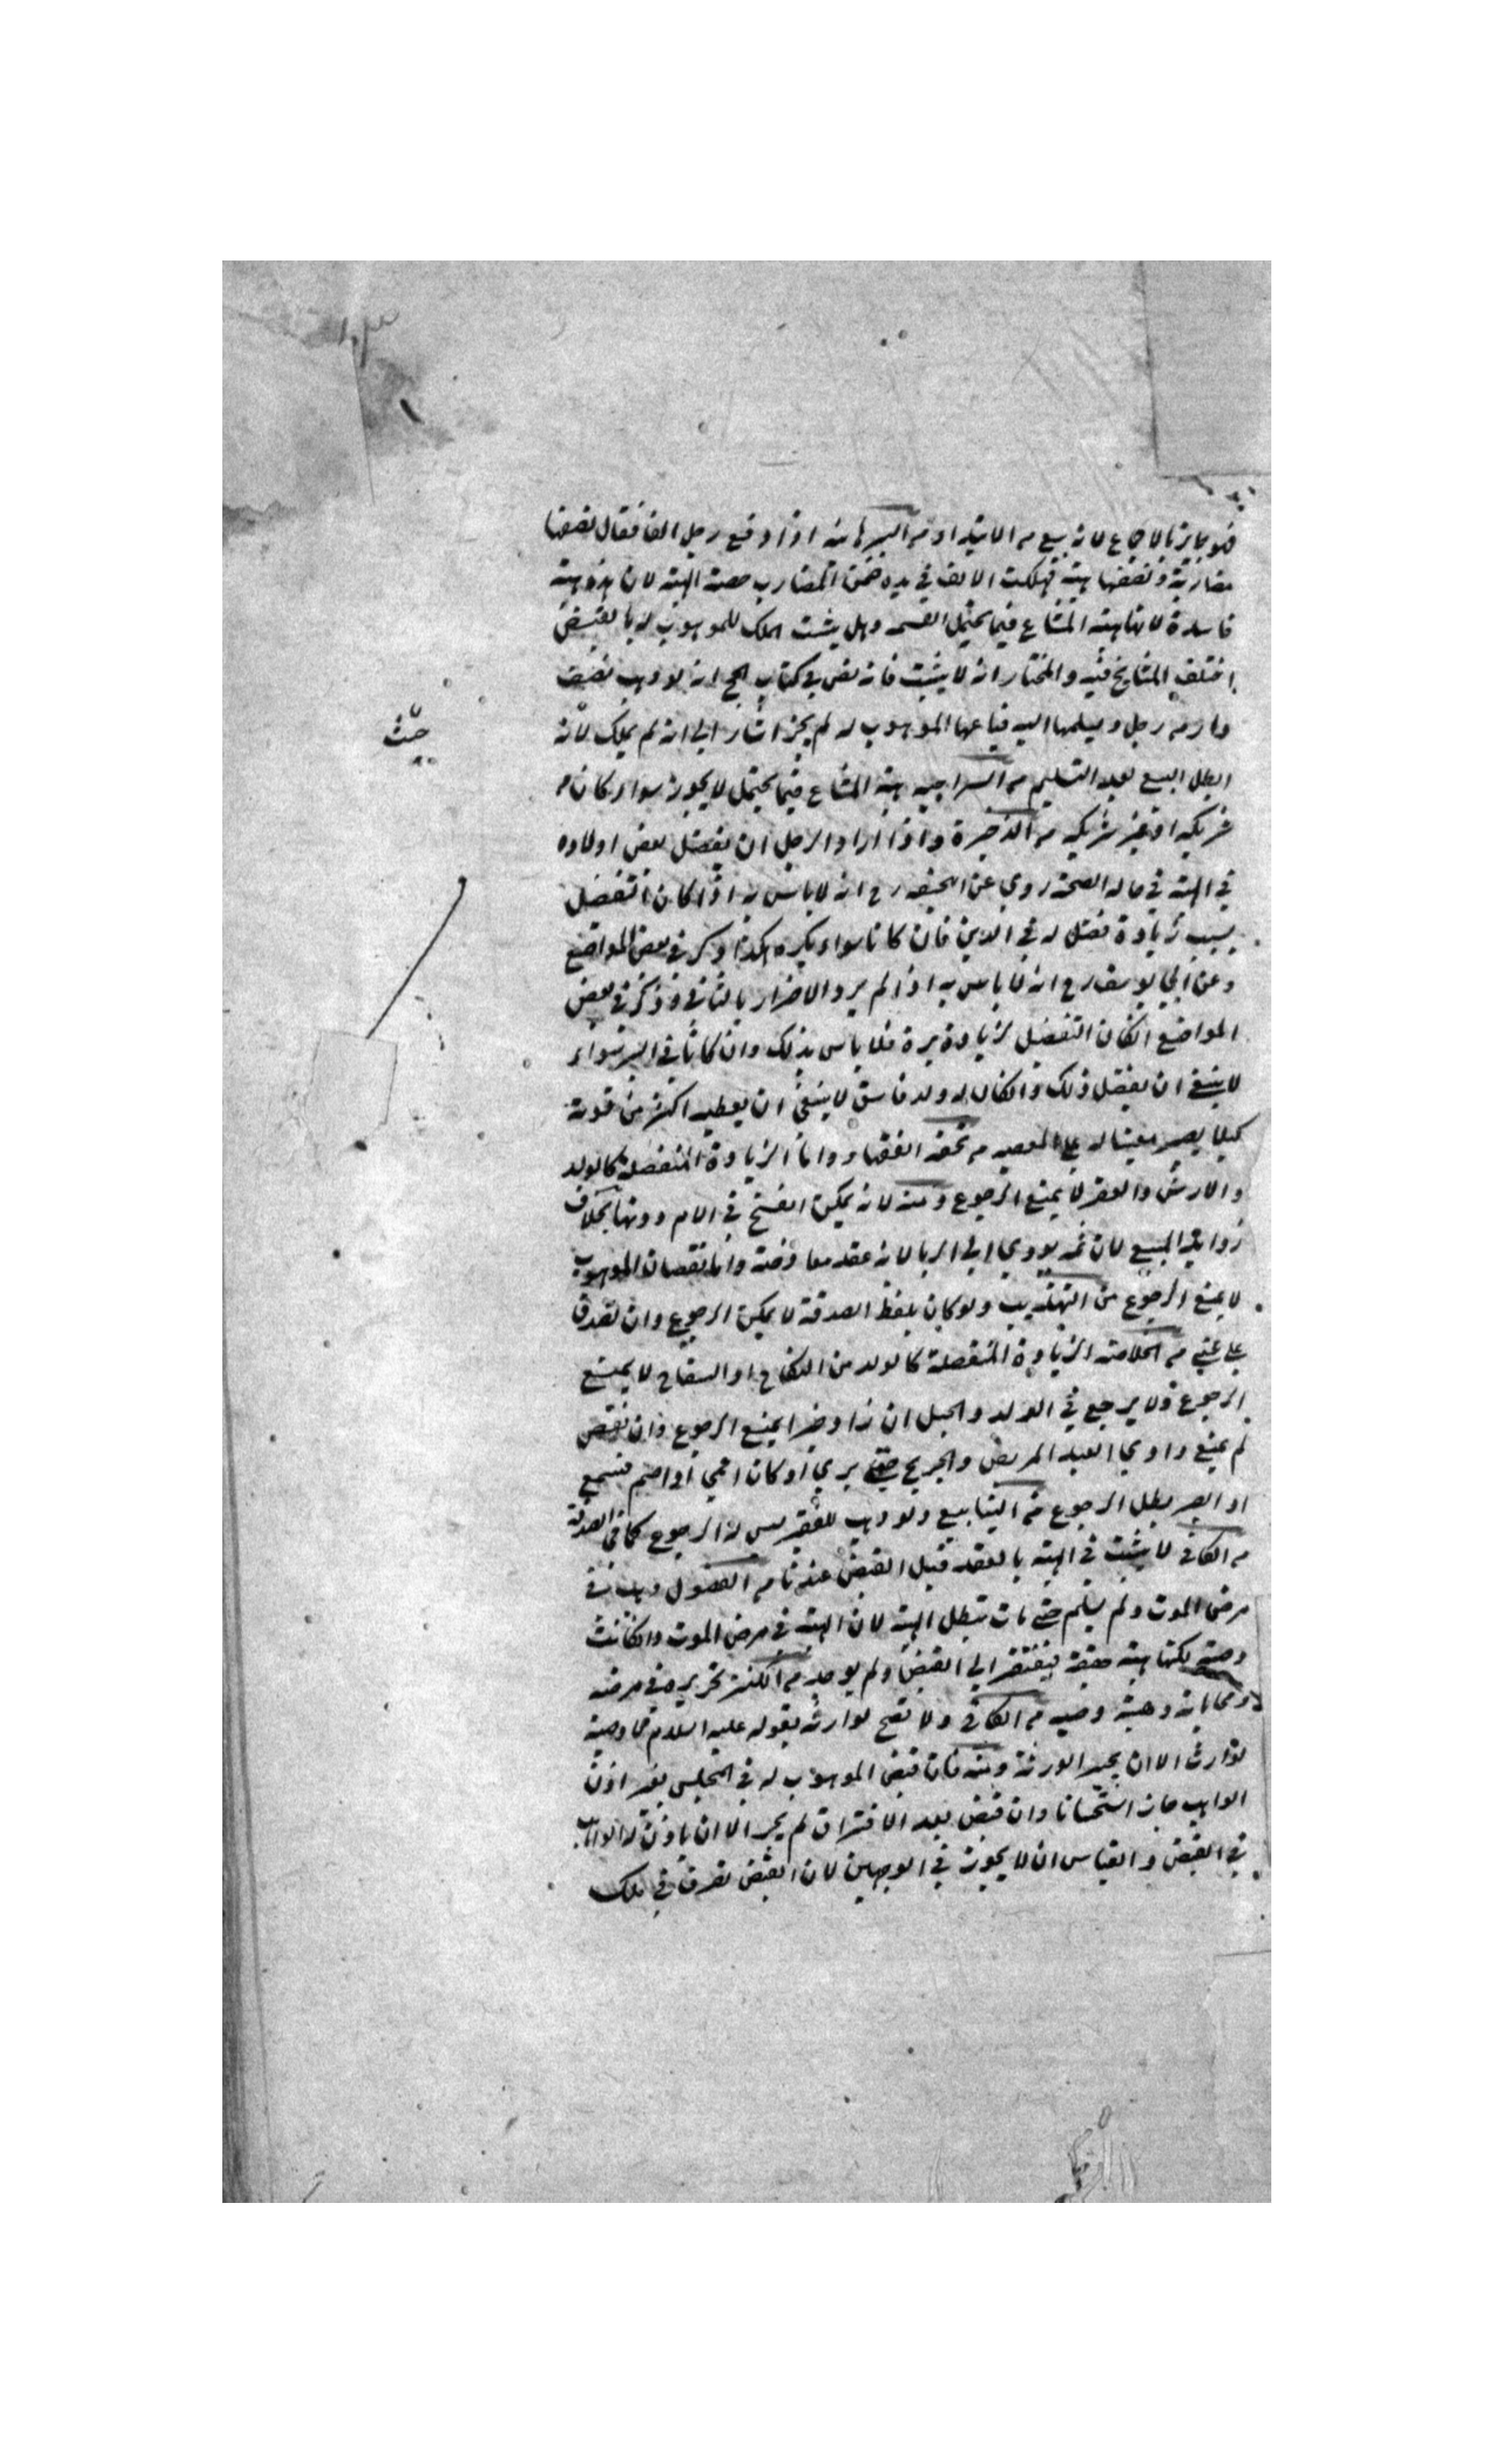 فهو جائز بالاجماع لانه بيع من الابتداء من البرهانيه اذا دفع رجل الفا فقال نصفها
مضاربة ونصفها هبة فهلكت الالف في يده ضمن المضارب حصة الهبه لان هذه هبة
فاسدة لانها هبة المشاع فيما يحتمل القسمه وهل يثبت الملك للموهوب له بالقبض
اختلف المشايخ فيه والمختار انه لا يثبت فانه نص في كتاب انه لو وهب نصف
دار من رجل وسلمها اليه فباعها الموهوب له لم يجز اشار الى انه لم يملك لانه
ابطل البيع بعد التسليم من السراجيه هبة المشاع فيما يحتمل لا يجوز سواء كان من
شريكه او غير شريكه من الذخيرة واذا اراد الرجل ان يفضل بعض اولاده
في الهبة في حالة الصحة روي عن ابيحنيفه رح انه لا باس به اذا كان التفضل
بسبب زيادة فضل له في الدين فان كانا سواء يكره هكذا ذكر في بعض المواضع
وعن ابي يوسف رح انه لا باس به اذا لم يرد الاضرار بالثاني وذكر في بعض
المواضع انكان التفضيل لزيادة بره فلا باس بذلك وان كانا في البر سواء
لا ينبغي ان يفضل ذلك وانكان له ولد فاسق لا ينبغي ان يعطيه اكثر من قوته
كيلا يصير معينا له على المعصيه من تحفة الفقهاء واما الزيادة المنفصلة كالولد
والارش والعقر لا يمنع الرجوع ومنه لانه يمكن الفسخ في الام دونها بخلاف
زوايد المبيع لان ثمه يودي الى الربا لانه عقد معاوضة واما نقصان الموهوب
لا يمنع الرجوع من التهذيب ولو كان بلفظ الصدقة لا يمكن الرجوع وان تصدق
على غني من الخلاصة الزيادة المنفصلة كالولد من النكاح او السفاح لا يمنع
الرجوع ولا يرجع في الولد والحبل ان زاد خيرا يمنع الرجوع وان نقص
لم يمنع داوي العبد المريض والجريح حتى بري او كان اعمى او اصم فسمع
او ابصر بطل الرجوع من الينابيع ولو وهب للفقير ليس له الرجوع كما في الصدقة
من الكافي لا يثبت في الهبة بالعقد قبل القبض عندنا من الفصول وهب في
مرض الموت ولم يسلم حتى مات تبطل الهبة لان الهبة في مرض الموت وانكانت
وصية لكنها هبة حقيقة فيفتقر الى القبض ولم يوجد من الكنز تحريره في مرضه
ومحاباته وهبته وصيه من الكافي ولا تصح لوارثه بقوله عليه السلام لا وصية
لوارث الا ان يجيز الورثة ومنه فان قبض الموهوب له في المجلس بغير اذن
الواهب جاز استحسانا وان قبض بعد الافتراق لم يجز الا ان ياذن له الواهب
في القبض والقياس ان لا يجوز في الوجهين لان القبض تصرف في ملك